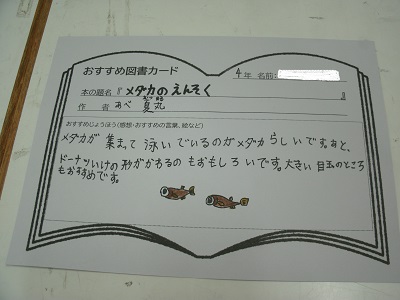 おすすめ図書カード
4年 名前:
本の題名『メダカのえんそく』
作 者 あべ 夏丸
なつ まる
おすすめじょうほう(感想・おすすめの言葉、絵など)
メダカが 集まって 泳いでいるのがメダカらしいです。あと、
ドーナツいけの形がかわるのもおもしろいです。大きい目玉のところ
もおすすめです。